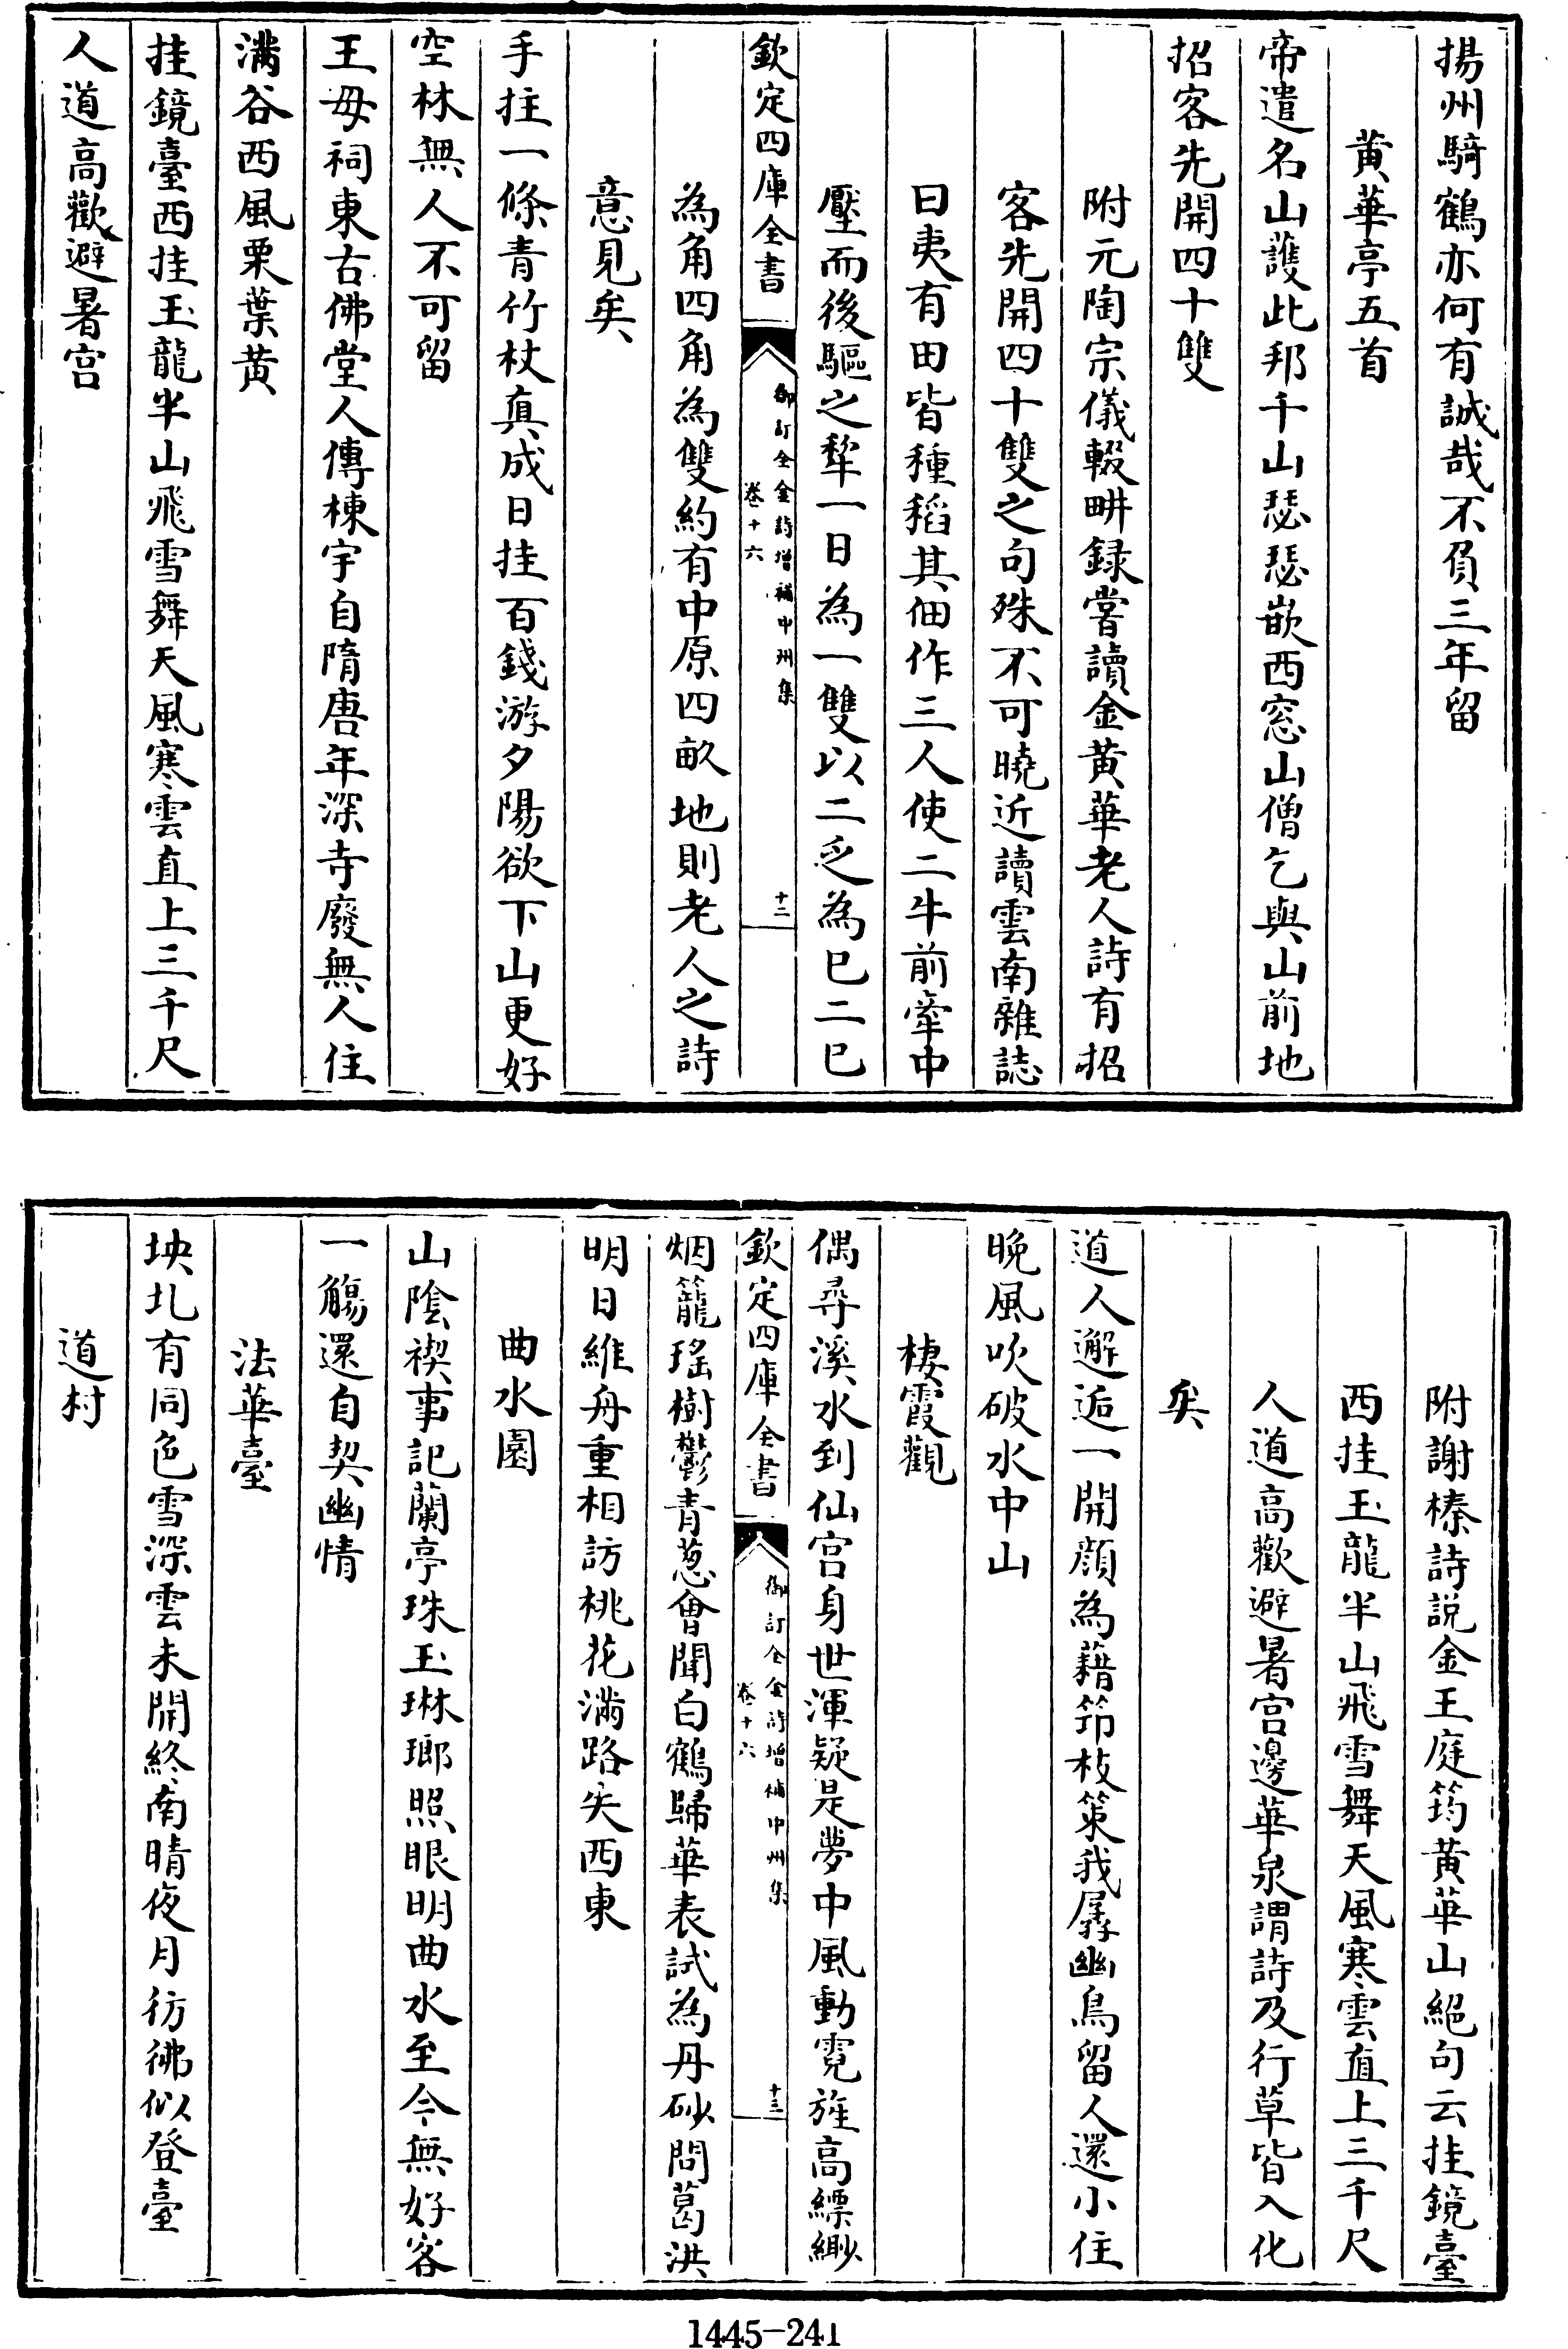 揚州騎鶴亦何有誠哉不負三年留
黄華亭五首
帝遣名山護此邦千山瑟瑟嵌西窓山僧乞與山前地
招客先開四十雙
附元陶宗儀輟畊録嘗讀金黄華老人詩有招
客先開四十雙之句殊不可曉近讀雲南雜誌
曰夷有田皆種稻其佃作三人使二牛前牽中
壓而後驅之犂一日為一雙以二乏為已二已
欽定四庫全書
御訂全金詩增補中州集
卷十六
十二
為角四角為雙約有中原四畝地則老人之詩
意見矣
手拄一條青竹杖真成日挂百錢游夕陽欲下山更好
空林無人不可留
王母祠東古佛堂人傳棟宇自隋唐年深寺廢無人住
滿谷西風栗葉黄
挂鏡臺西挂玉龍半山飛雪舞天風寒雲直上三千尺
人道高歡避暑宫
附謝榛詩説金王庭筠黄華山絕句云挂鏡臺
西挂玉龍半山飛雪舞天風寒雲直上三千尺
人道高歡避暑宫邊華泉謂詩及行草皆入化
矣
道人邂逅一開顔為藉筇枝策我孱幽鳥留人還小住
晚風吹破水中山
棲霞觀
偶尋溪水到仙宫身世渾疑是夢中風動霓旌高縹緲
欽定四庫全書
御訂全金詩增補中州集
卷十六
十三
烟籠瑤樹鬱青葱會聞白鶴歸華表試為丹砂問葛洪
明日維舟重相訪桃花滿路失西東
曲水園
山陰禊事記蘭亭珠玉琳瑯照眼明曲水至今無好客
一觴還自契幽情
法華臺
坱圠有同色雪深雲未開終南晴夜月彷彿似登臺
道村
1445-241